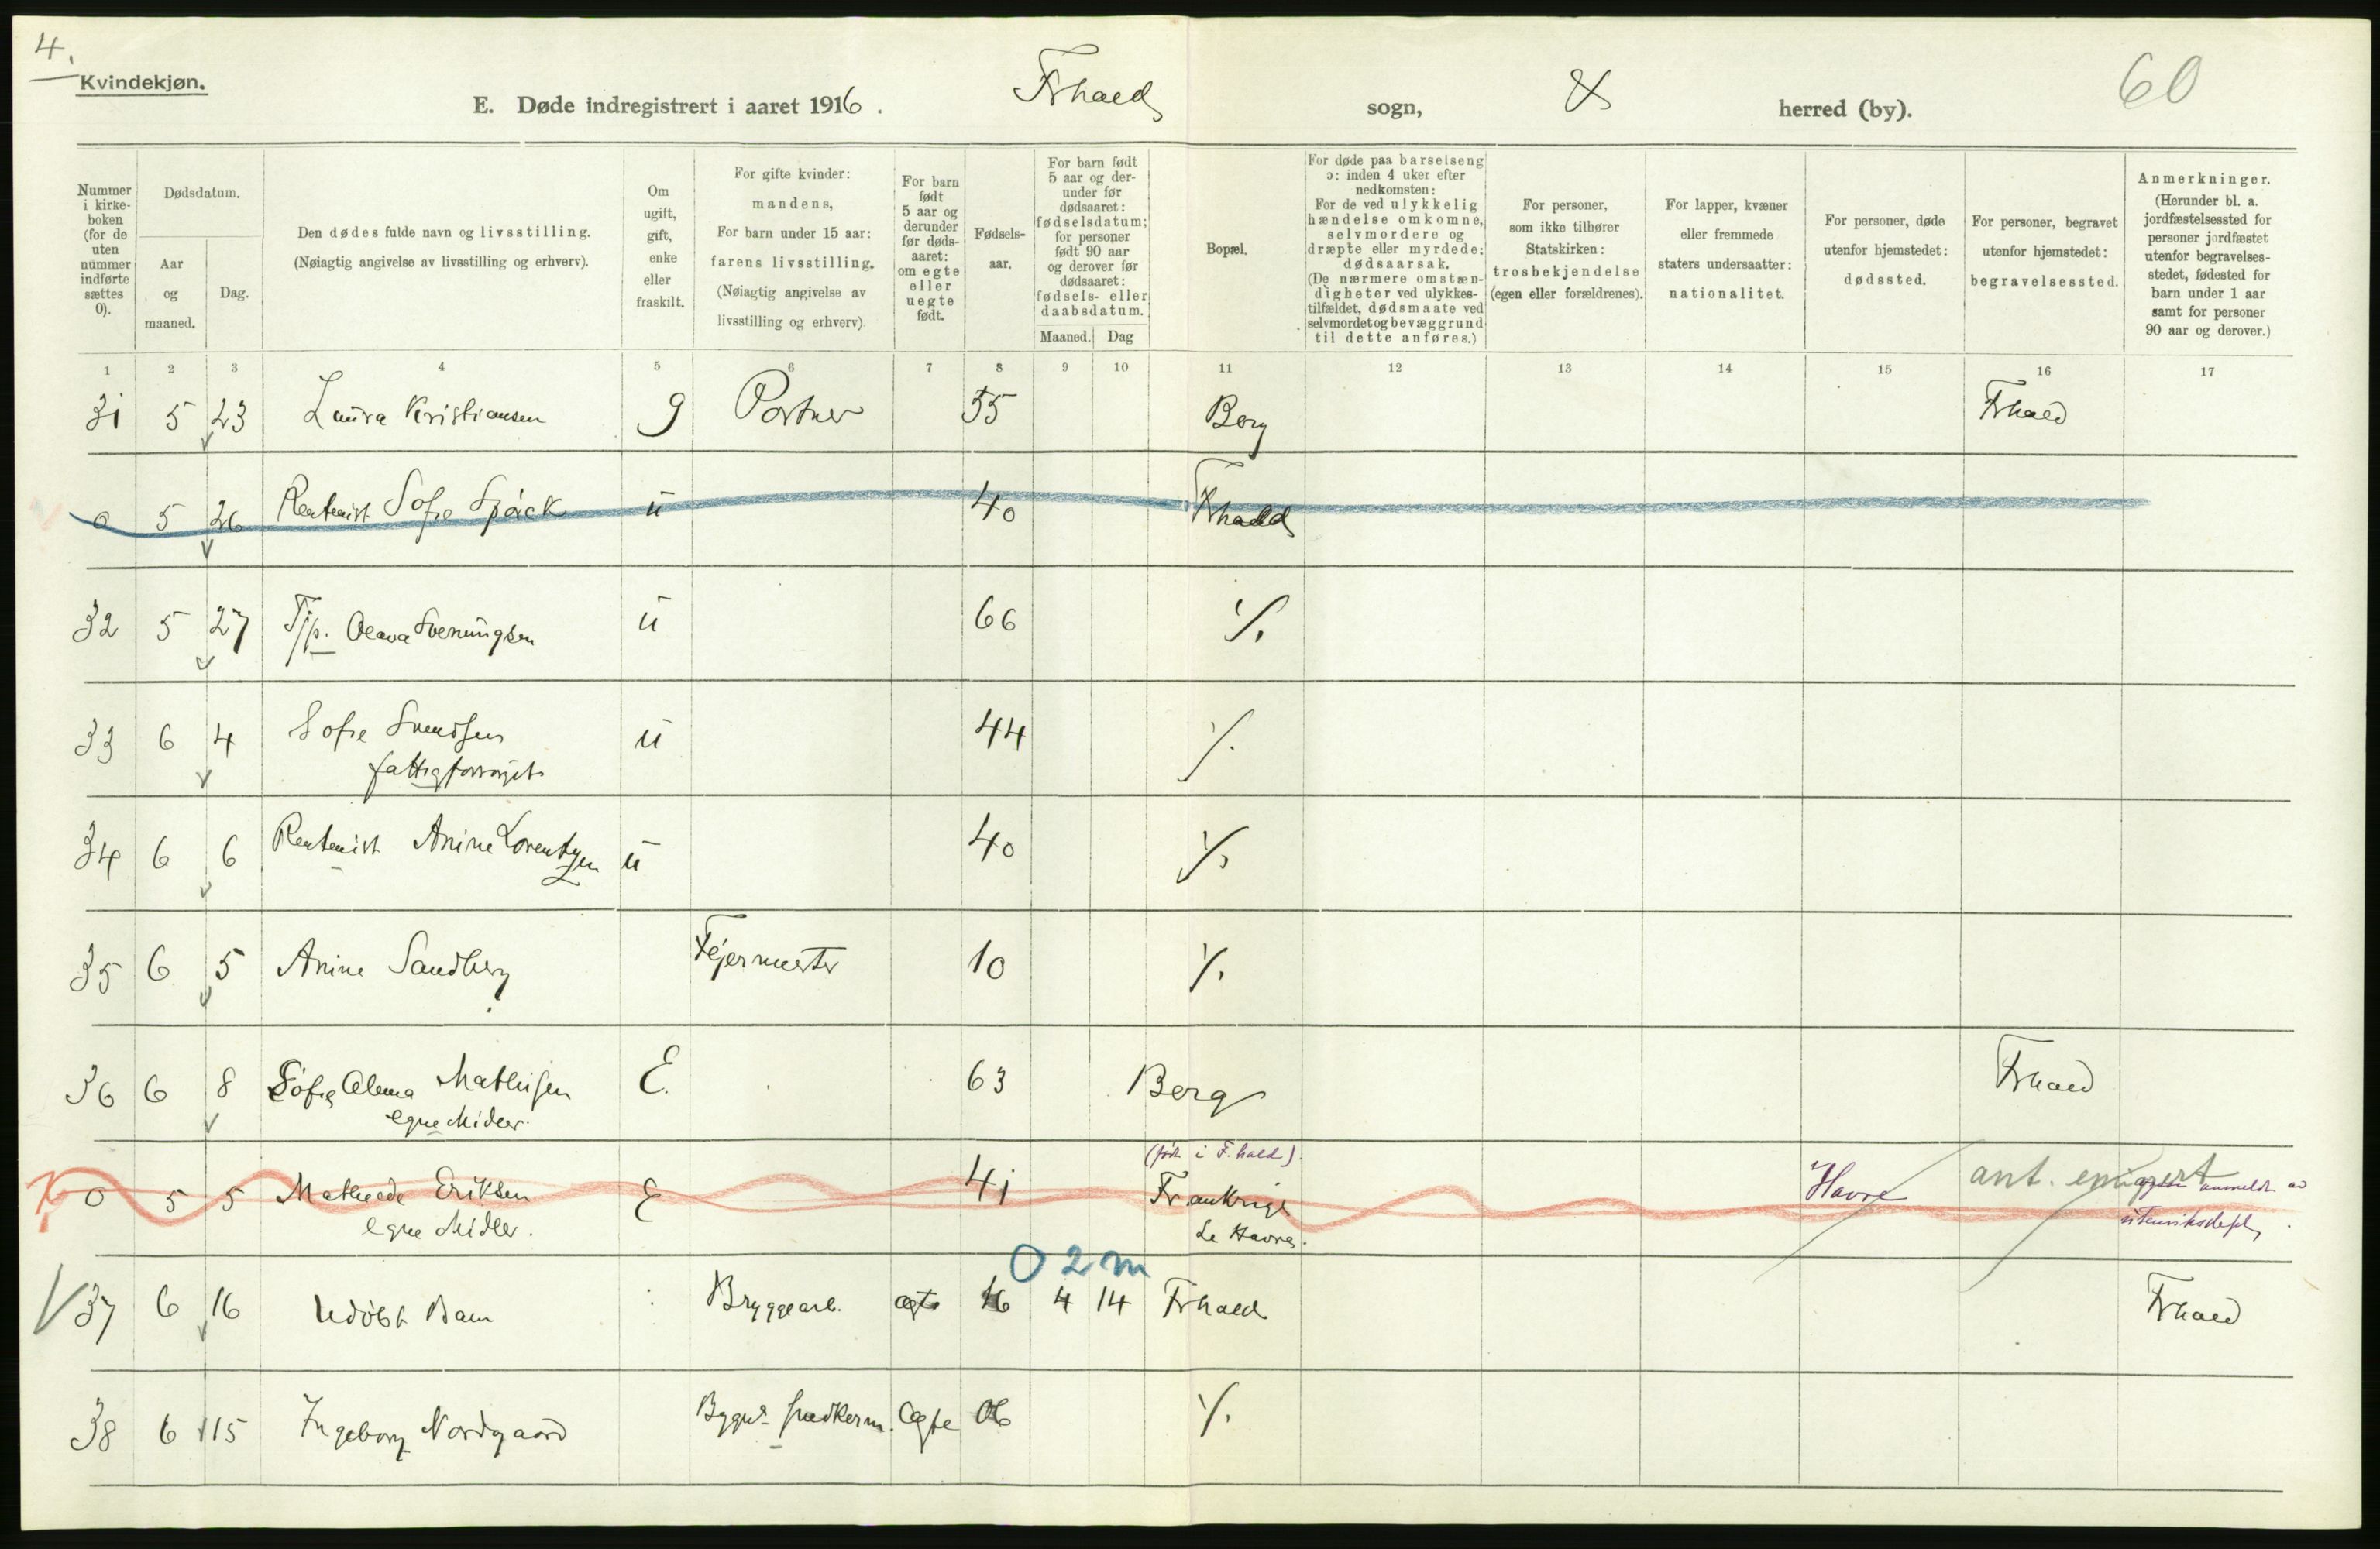 4.
Kvindekjøn.
E. Døde indregistrert i aaret 1916. Frhald sogn, & herred (by). 60
Nummer i kirkeboken (for de uten nummer indførte sættes 0).
Dødsdatum.
Aar og maaned.
Dag.
Den dødes fulde navn og livsstilling.
(Nøiagtig angivelse av livsstilling og erhverv).
Om ugift, gift, enke eller fraskilt.
For gifte kvinder: mandens,
For barn under 15 aar: farens livsstilling.
(Nøiagtig angivelse av livsstilling og erhverv)
For barn født 5 aar og derunder før dødsaaret: om egte eller uegte født.
Fødselsaar.
For barn født 5 aar og derunder før dødsaaret: fødselsdatum; for personer født 90 aar og derover før dødsaaret: fødsels- eller daabsdatum.
Maaned. Dag
Bopæl.
For døde paa barselseng ɔ: inden 4 uker efter nedkomsten:
For de ved ulykkelig hændelse omkomne, selvmordere og dræpte eller myrdede: dødsaarsak.
(De nærmere omstændigheter ved ulykkestilfældet, dødsmaate ved selvmordet og bevæggrund til dette anføres.)
For personer, som ikke tilhører Statskirken: trosbekjendelse (egen eller forældrenes).
For lapper, kvæner eller fremmede staters undersaatter: nationalitet.
For personer, døde utenfor hjemstedet: dødssted.
For personer, begravet utenfor hjemstedet: begravelsessted.
Anmerkninger.
(Herunder bl. a. jordfæstelsessted for personer jordfæstet utenfor begravelsesstedet, fødested for barn under 1 aar samt for personer 90 aar og derover.)
1 2 3 4 5 6 7 8 9 10 11 12 13 14 15 16 17
31 5 23 Laura Kristiansen g Portner 55 Berg Frhald
0 5 26 Rentenist Sofie Spåck ü 40 Frhald
32 5 27 Tjp. Olava Svenungsen ü 66 ·/.
33 6 4 Sofie Svendsen ü 44 ·/.
fattigforsørget
34 6 6 Rentenist Anine Lorentzen ü 40 ·/.
35 6 5 Anine Sandberg Fejermester 10 ·/.
36 6 8 Sofie Alma Mathisen E. 63 Berg Frhald
egne Midler.
(født i F.hald).
0 5 5 Mathilde Eriksen E 41 Frankrige Havre ant. emigrert anmeldt av
egne Midler. Le Havre. utenriksdept.
0 2 m
V 37 6 16 Udøbt Barn Bryggearb. ægte 16 4 14 Frhald Frhald
38 6 15 Ingeborg Nordgaard Bygn. snedkerm. Ægte 06 ·/.